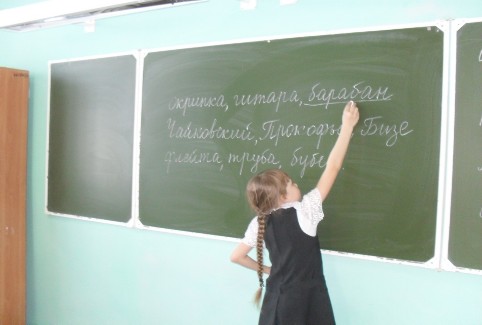 скрипка, гитара, барабан
Чайковский, Прокофь Бизе
флейта, труба, буб